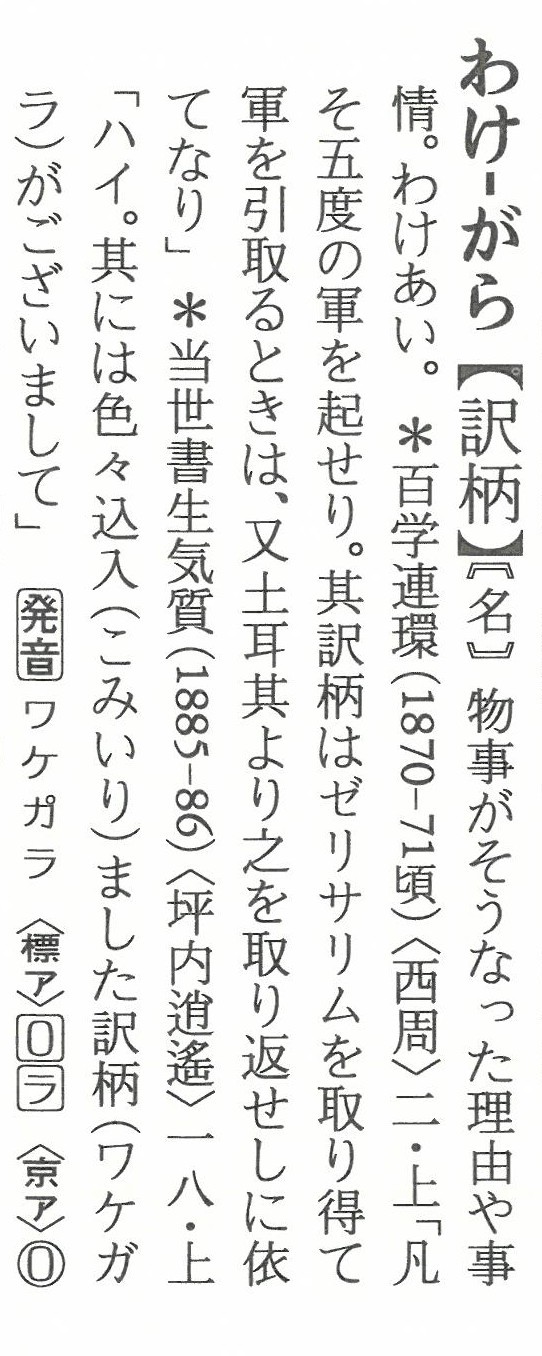 わけ-がら【訳柄】〘名〙物事がそうなった理由や事
情。わけあい。 ＊百学連環(1870-71頃)〈西周〉二・上「凡
そ五度の軍を起せり。其訳柄はゼリサリムを取り得て
軍を引取るときは、又土耳其より之を取り返せしに依
てなり」 ＊当世書生気質(1885-86)〈坪内逍遙〉一八・上
「ハイ。其には色々込入(こみいり)ました訳柄(ワケガ
ラ)がございまして」 発音 ワケガラ 〈標ア〉0 ラ 〈京ア〉0